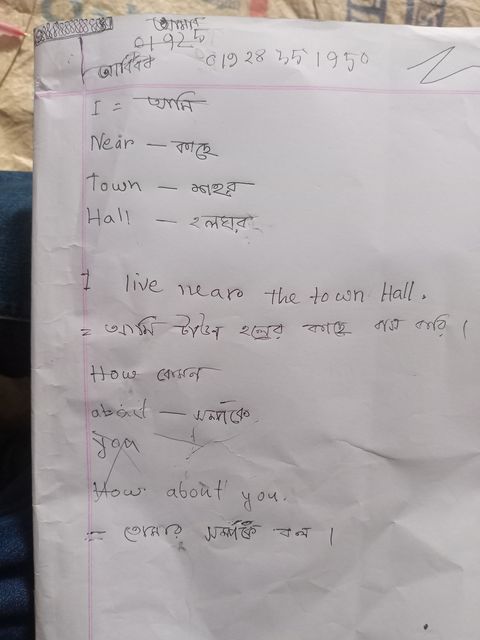 আমার
01925
আবির 01928351950
I = আমি
Near — কাছে
Town — শহর
Hall — হলঘর
I live near the town Hall.
= আমি টাউন হলের কাছে বাস করি।
How কেমন
about — সম্পর্কে
you
How about you.
= তোমার সম্পর্কে বল।